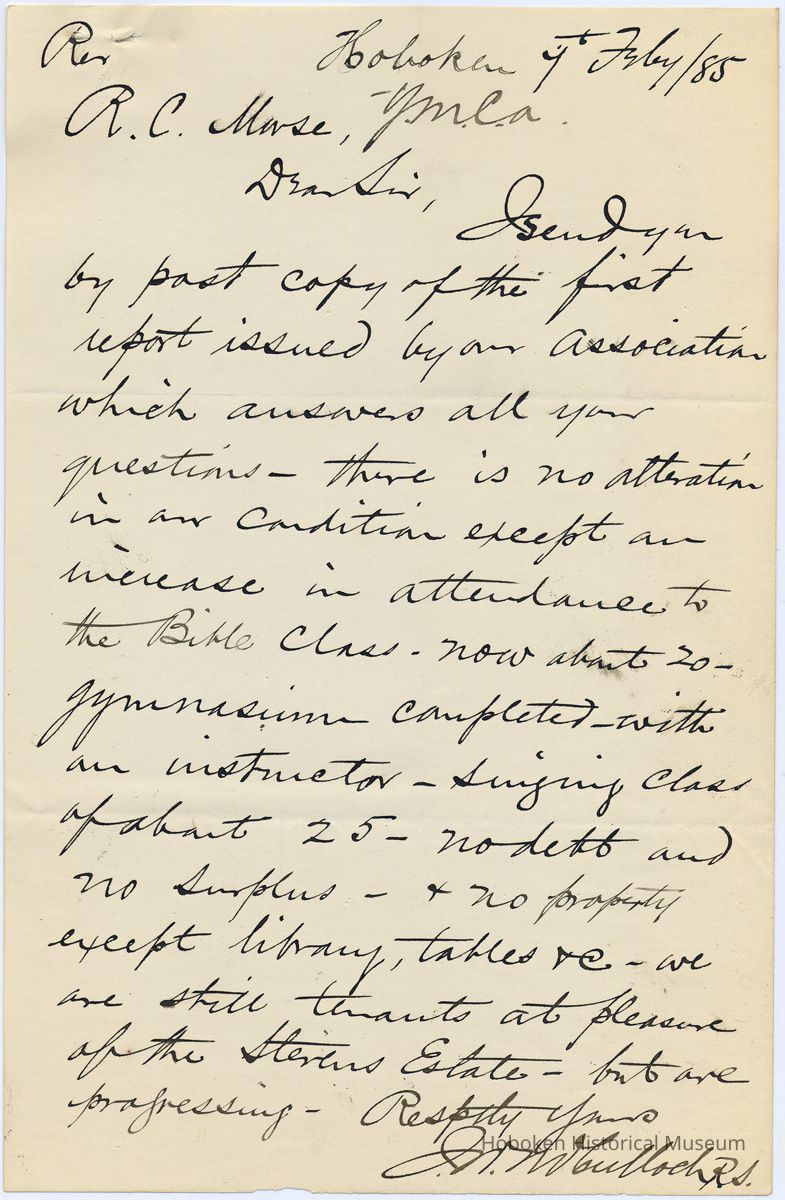 Rev Hoboken 4th Feby/85
R. C. Morse, Y.M.C.A.
Dear Sir,
I send you
by post copy of the first
report issued by our association
which answers all your
questions – there is no alteration
in our condition except an
increase in attendance to
the Bible Class - now about 20 –
gymnasium completed – with
an instructor – Singing Class
of about 25 – no debt and
no surplus – & no property
except library, tables &c – we
are still tenants at pleasure
of the Stevens Estate – but are
progressing – Resptly Yours
McCulloch R.S.
Hoboken Historical Museum